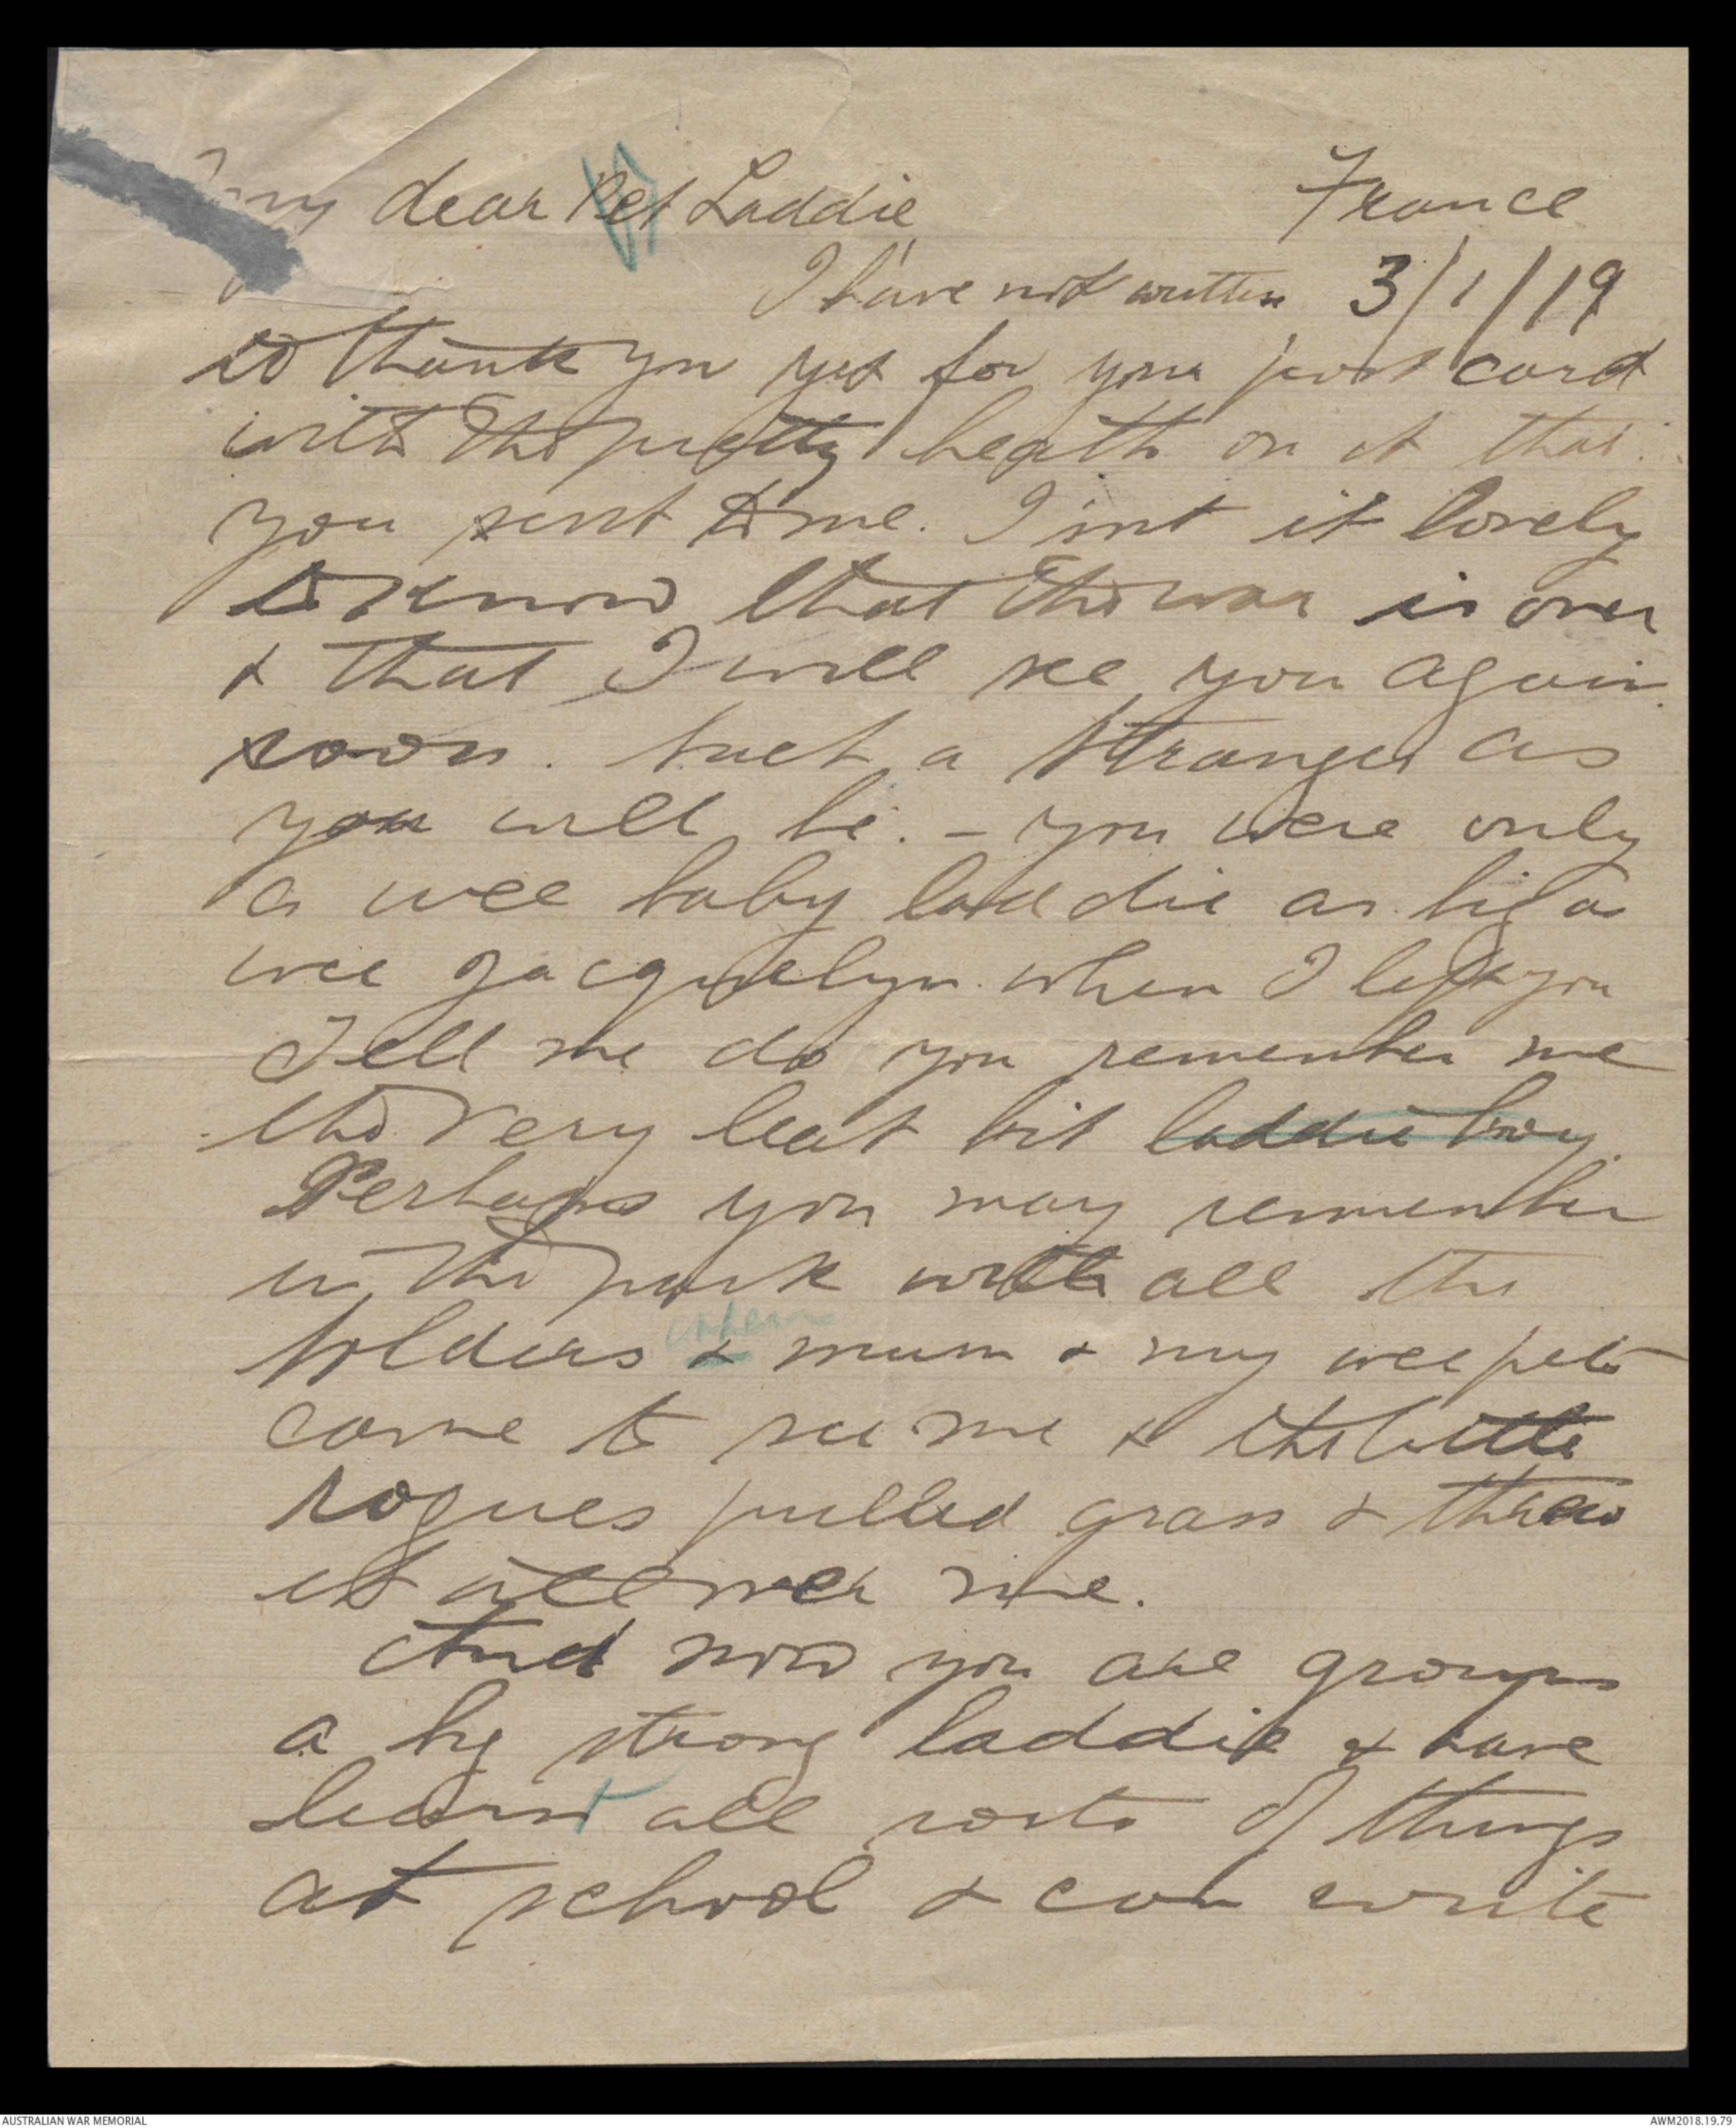 My dear Pet Laddie
France
I have not written 3/1/19
to thank you yet for your post card
with the pretty heath on it that
you sent to me. Isint it lovely
to know that the war is over
& that I will see you again
soon. Such a stranger as
you will be. – you were only
a wee baby laddie as big as
wee Jacquelyn when I left you
Tell me do you remember me
the very least bit laddie boy.
Perhaps you may remember
in the park with all the
when
soldiers & mum & my wee pets
came to see me & the little
rogues pulled grass & threw
it all over me.
And now you are grown
a big strong laddie & have
learnt all sorts of things
at school & can write
AUSTRALIAN WAR MEMORIAL
AWM2018.19.79